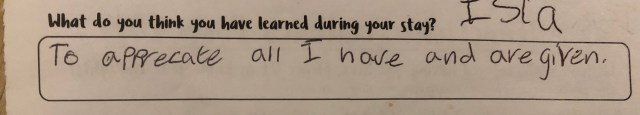 What do you think you have learned during your stay? Isla
To apprecate all I have and are given.